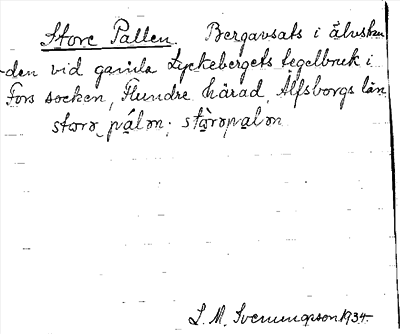 Store Pallen. Bergavsats i älvskun
den vid gamla Lyckebergets tegelbruk i
Fors socken, Flundre härad, Älfsborgs län.
L. M. Svenungsson 1934.